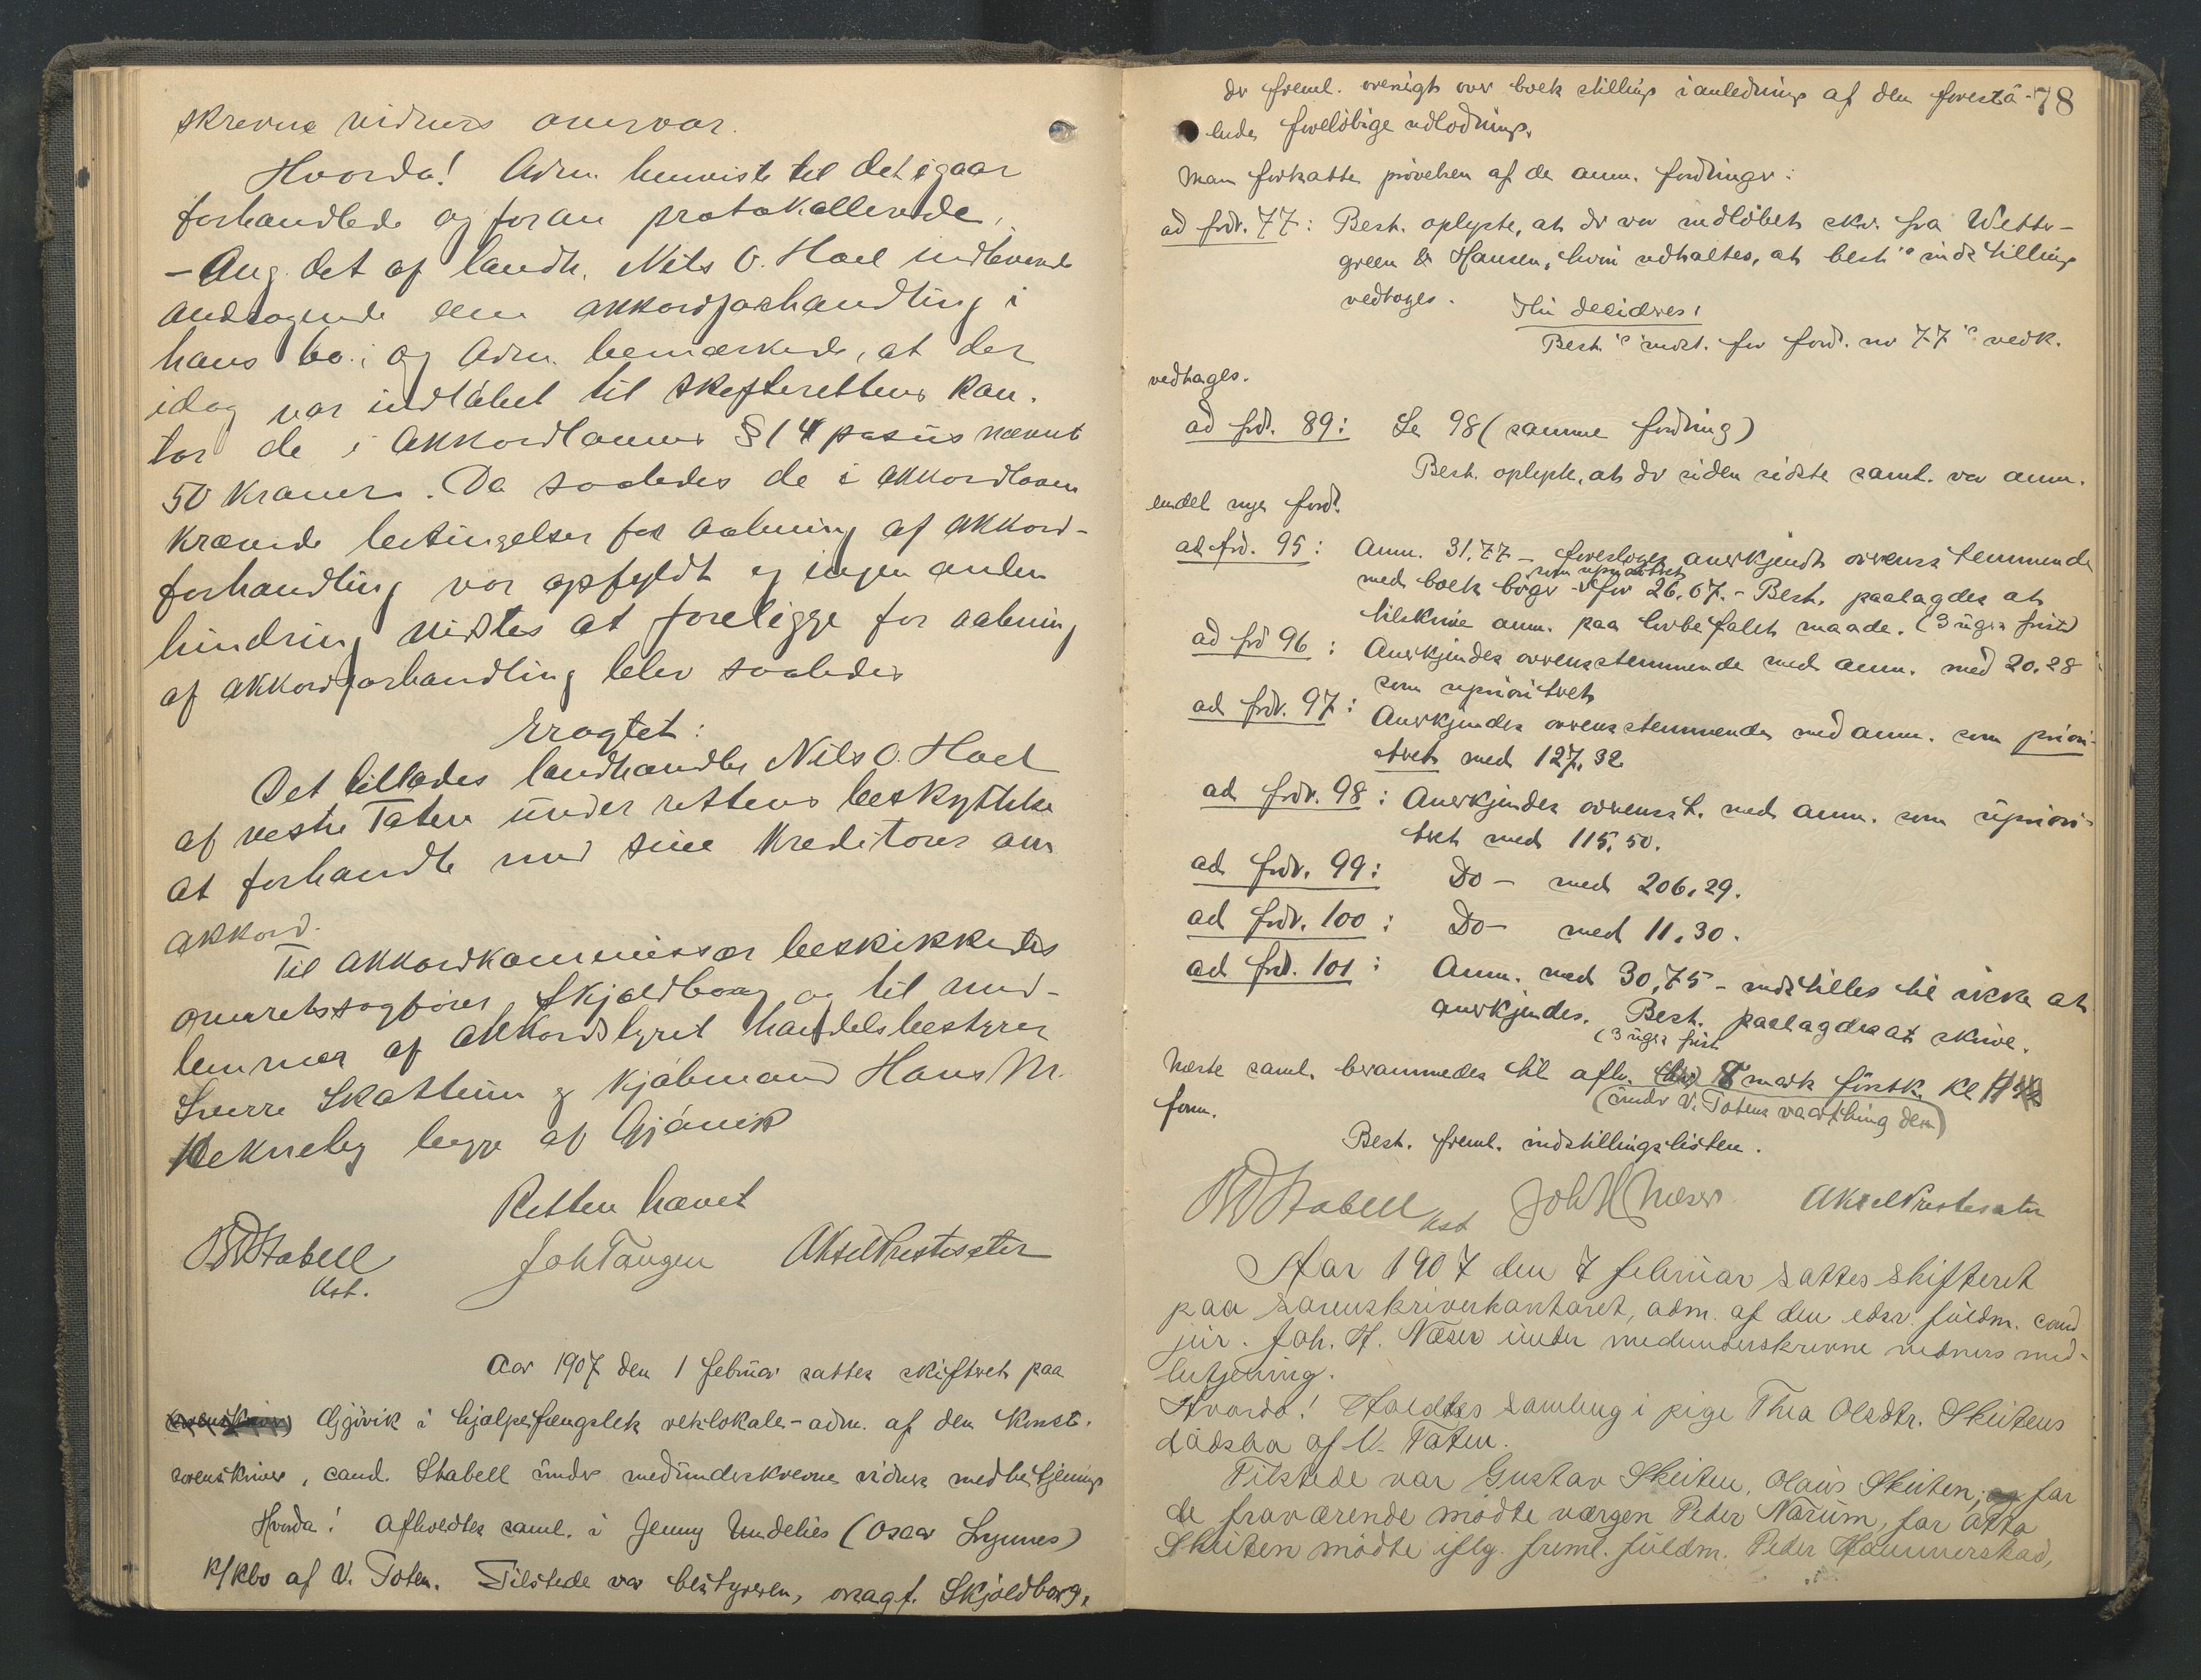 skrevne vidners ansvar.
Hvorda! Adm. henviste til det igaar
forhandlede og foran protokollerede,
- Ang. det af landh. Nils O. Hoel indleverede
andragende om akkordforhandling i
hans bo; og Adm. bemærkede, at der
idag var indløbet til skifterettens kon-
tor de i Akkordlovens § 14 passus nævnt
50 kroner. Da saaledes de i akkordloven
krævede betingelser for aabning af akkord-
forhandling var opfyldt og ingen anden
hindring vidstes at foreligge for aabning
af akkordforhandling blev saaledes
Eragtet:
Det tillades landhandler Nils O. Hoel
af vestre Toten under rettens beskyttelse
at forhandle med sine kreditorer om
akkord.
Til akkordkommissær beskikkedes
overretssagfører Skjoldborg og til med-
lemmer af akkordstyret handelsbestyrer
Sverre Skattum og kjøbmand Hans M.
begge af Gjøvik
Retten hævet
Stabell
kst.
Joh Tangen
Aksel Prestesæter
Aar 1907 den 1 februar sattes skifteret paa
Gjøvik i hjælpefængslets retslokale - adm. af den konst.
sorenskriver, cand. Stabell under medunderskrevne vidners medbetjening
Hvorda! Afholdtes saml. i Jenny Undelies (Oscar Lynnes)
k/kbo af V. Toten. Tilstede var bestyreren, orsagf. Skjoldborg,
78
der freml. oversigt over boets stilling i anledning af den forestå-
ende foreløbige udlodning.
Man fortsatte prøvelsen af de anm. fordringer:
ad fodr. 77: Best. oplyste, at der var indløbet skr. fra Wetter-
green & Hansen, hvori udtaltes, at best's indstilling
vedtoges.
Thi decideres:
Best's indst. for ford. no 77's vedk.
vedtages.
ad ford. 89: Se 98 (samme fordring)
Best. oplyste, at der siden sidste saml. var anm.
endel nye ford.
ad ford. 95: Anm. 31.77 - foresloges anerkjendt overensstemmende
som uprioritert
med boets bøger - for 26.07. - Best. paalagdes at
tilskrive anm. paa lovbefalet maade. (3 ugers frist)
ad ford 96: Anerkjendes overensstemmende med anm. med 20.28
som uprioritert
ad fodr. 97: Anerkjendes overensstemmende med anm. som priori-
tert med 127,32
ad fodr. 98: Anerkjendes overensst. med anm. som upriori-
tert med 115,50.
ad fodr. 99: Do - med 206,29.
ad fodr. 100: Do - med 11,30.
ad ford. 101: Anm. med 30,75 - indstilles til ikke at
anerkjendes. Best. paalagdes at skrive.
(3 ugers frist
Næste saml. berammedes til afh. 8 marts førstk. kl
(under V. Totens vaarthing der)
form.
Best. freml. indstillingslisten.
Stabell
kst
Joh H Næser
Aksel Prestesæter
Aar 1907 den 7 februar sattes skifteret
paa sorenskriverkontoret, adm. af den edsv. fuldm. cand
jur. Joh. H. Næser under medunderskrevne vidners med-
betjening.
Hvorda! Holdtes samling i pige Thea Olsdtr. Skutens
dødsbo af V. Toten.
Tilstede var Gustav Skuten, Olaus Skuten, for
de fraværende mødte værgen Peder Narum, for
Skuten mødte iflg. freml. fuldm. Peder Hammerstad,